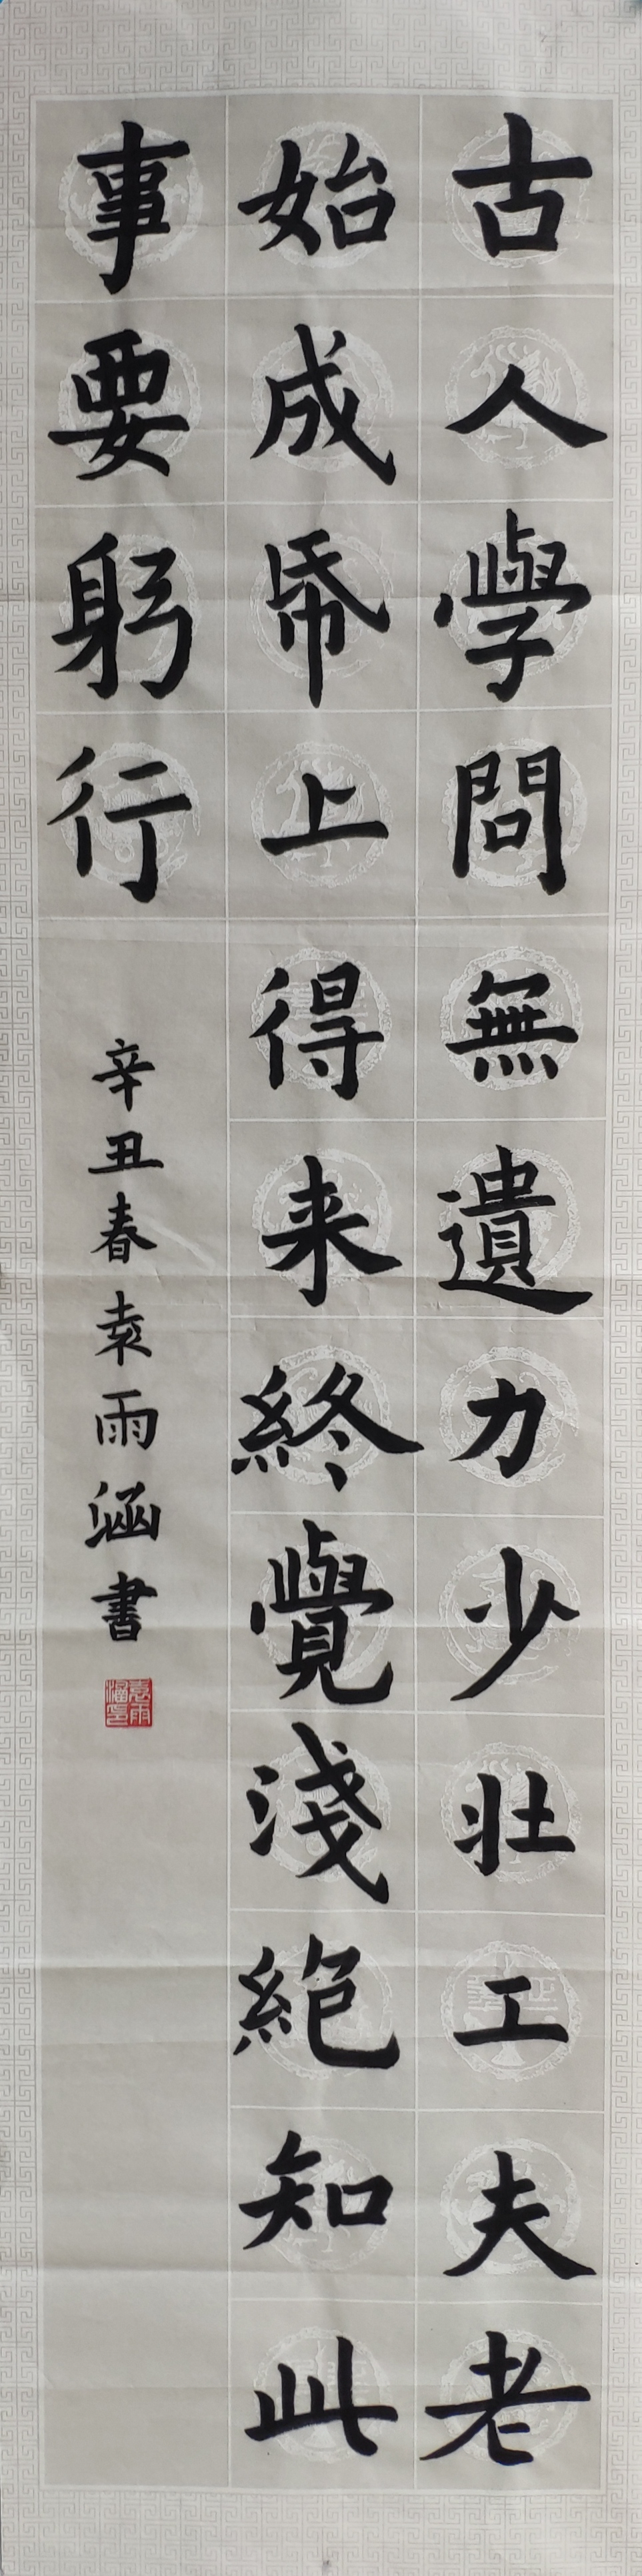 古人學問無遺力少壯工夫老
始成帋上得来終覺淺絶知此
事要躬行
辛丑春袁雨涵書
袁雨涵印